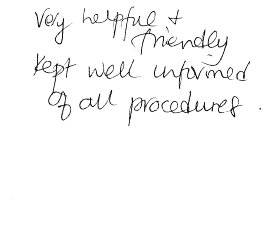 Very helpful +
friendly
Kept well informed
of all procedures.